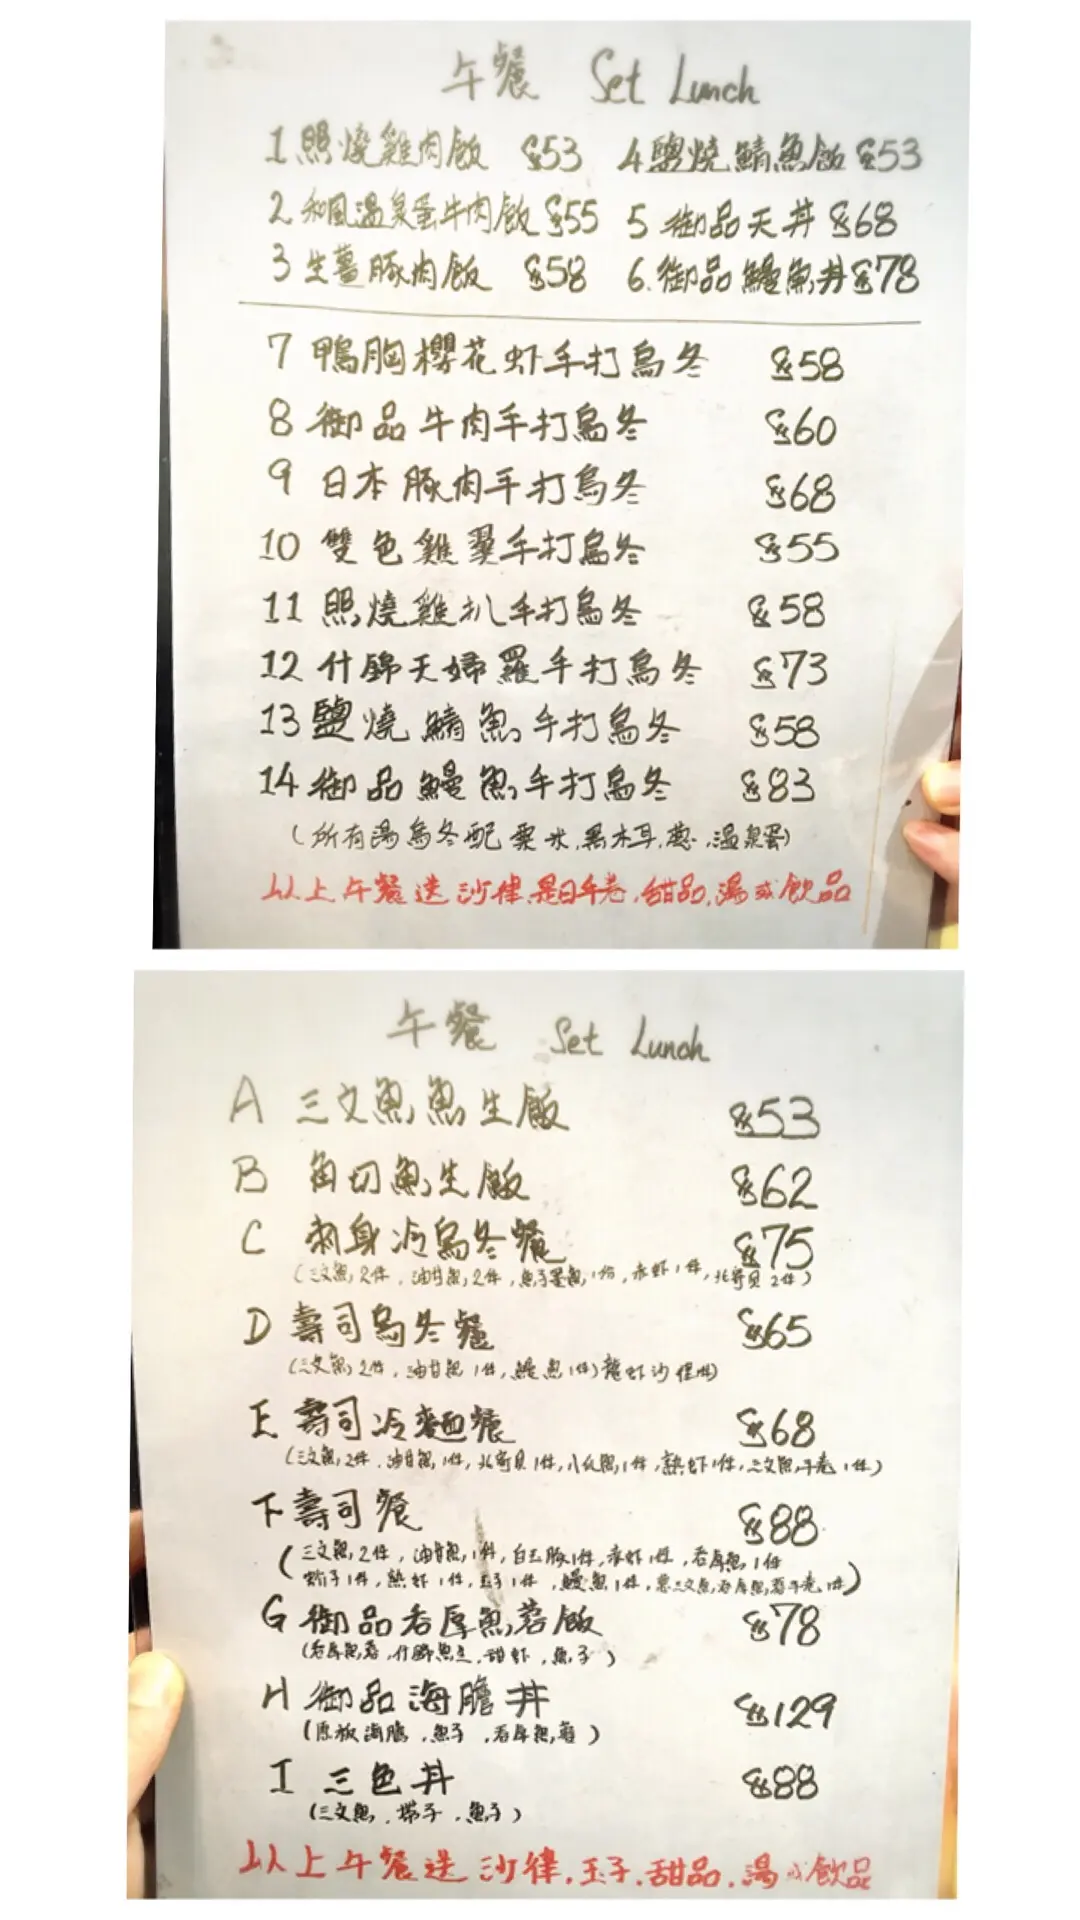 午餐 Set Lunch
1 照燒雞肉飯 $53 4 鹽燒鯖魚飯 $53
2 和風溫泉蛋牛肉飯 $55 5 御品天丼 $68
3 生薑豚肉飯 $58 6. 御品鰻魚丼 $78
7 鴨胸櫻花虾手打烏冬 $58
8 御品牛肉手打烏冬 $60
9 日本豚肉手打烏冬 $68
10 雙色雞翼手打烏冬 $55
11 照燒雞扒手打烏冬 $58
12 什錦天婦羅手打烏冬 $73
13 鹽燒鯖魚手打烏冬 $58
14 御品鰻魚手打烏冬 $83
(所有湯烏冬配粟米,黑木耳,蔥,溫泉蛋)
以上午餐送沙律,是日手卷,甜品,湯或飲品
午餐 Set Lunch
A 三文魚魚生飯 $53
B 角切魚生飯 $62
C 刺身冷烏冬餐 $75
(三文魚2件,油甘魚2件,魚子墨魚1份,赤虾1件,北寄貝2件)
D 壽司烏冬餐 $65
(三文魚2件,油甘魚1件,鰻魚1件)龍虾沙律
E 壽司冷麵餐 $68
(三文魚2件,油甘魚1件,北寄貝1件,八爪魚1件,熟虾1件,三文魚手卷1件)
F 壽司餐 $88
(三文魚2件,油甘魚1件,白玉豚1件,赤虾1件,吞拿魚1件
帶子1件,熟虾1件,玉子1件,鰻魚1件,三文魚吞拿魚蓉手卷1件)
G 御品吞拿魚蓉飯 $78
(吞拿魚蓉,什錦魚生,甜虾,魚子)
H 御品海膽丼 $129
(原板海膽,魚子,吞拿魚蓉)
I 三色丼 $88
(三文魚,帶子,魚子)
以上午餐送沙律,玉子,甜品,湯或飲品